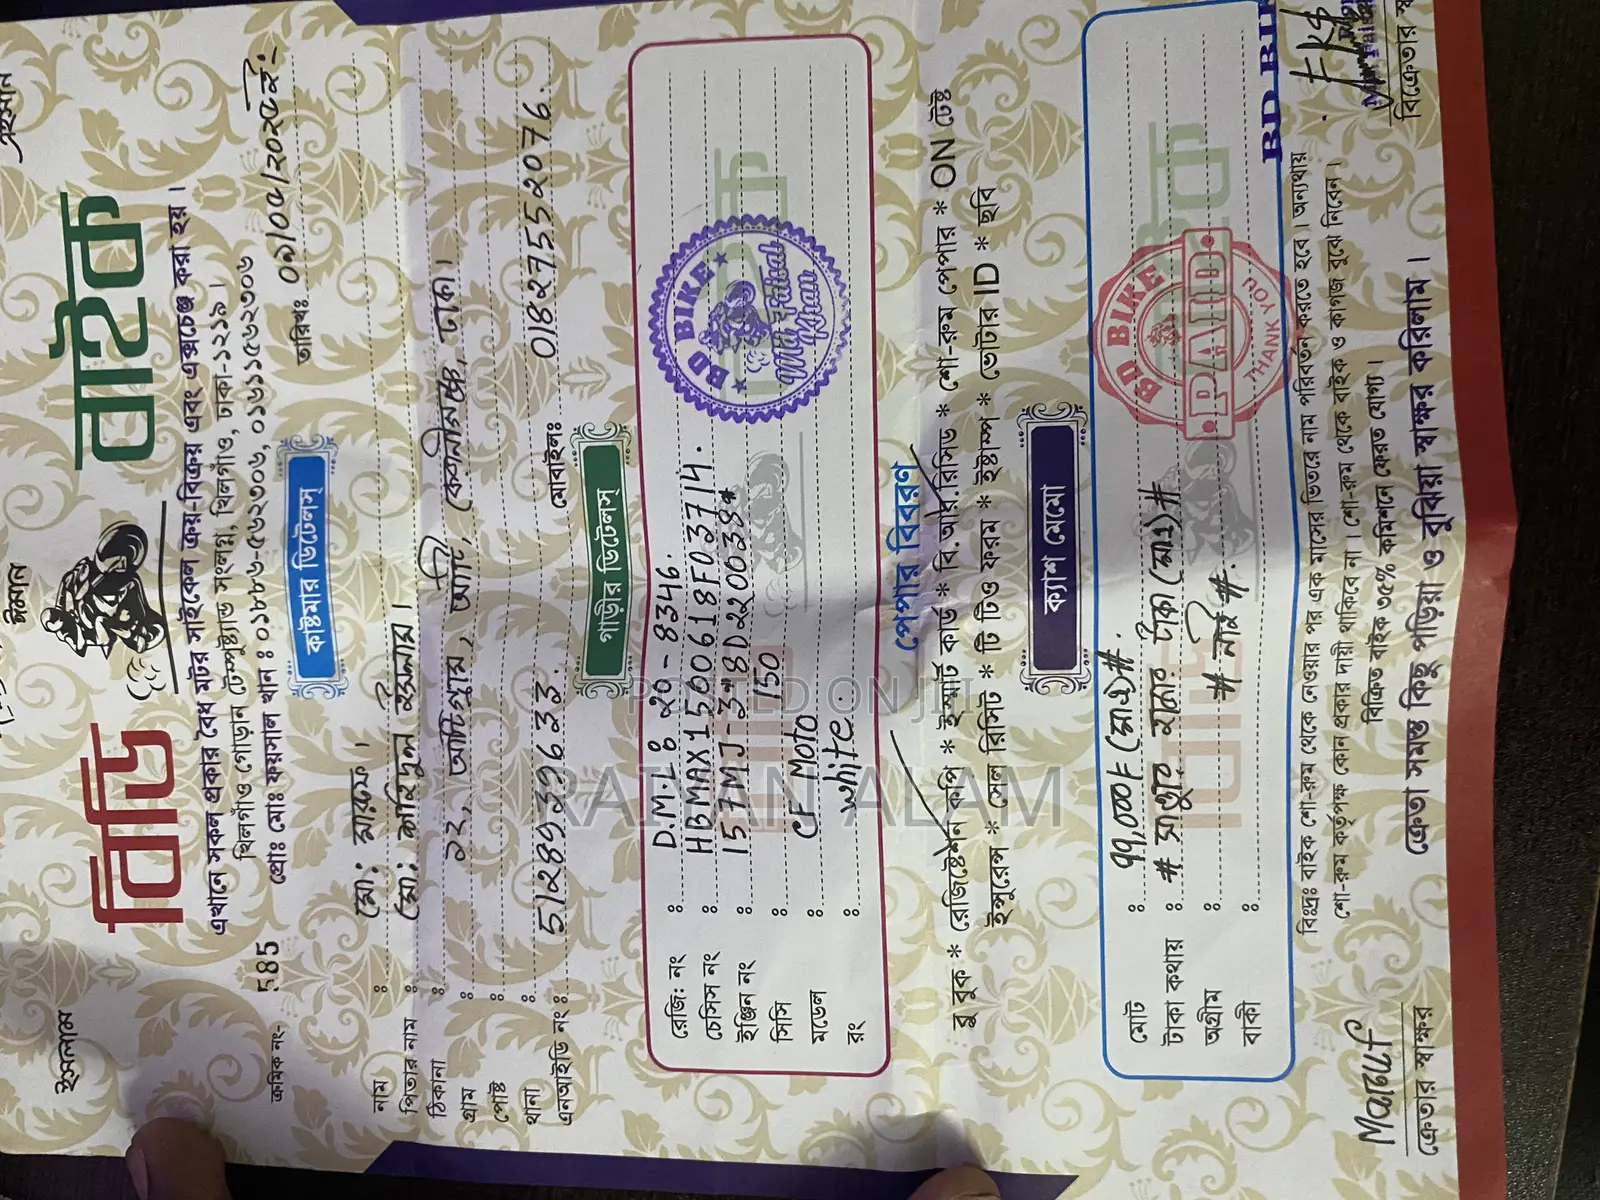 ইসলাম ঈমান এহসান
বিডি বাইক
এখানে সকল প্রকার বৈধ মটর সাইকেল ক্রয়-বিক্রয় এবং এক্সচেঞ্জ করা হয় ।
খিলগাঁও গোড়ান টেম্পুষ্ট্যান্ড সংলগ্ন, খিলগাঁও, ঢাকা-১২১৯ ।
প্রোঃ মোঃ ফয়সাল খান : ০১৮৮৬-৫৬২৩০৬, ০১৬১১৫৬২৩০৬
ক্রমিক নং- 585
তারিখঃ
কাষ্টমার ডিটেলস্
নাম : মো: মারুফ ।
পিতার নাম : মো: জহিদুল ইসলাম ।
ঠিকানা :
গ্রাম : ১২, আটিগ্রাম, আটি, কেরানীগঞ্জ, ঢাকা ।
পোষ্ট :
থানা :
মোবাইলঃ 01827552076.
এনআইডি নং : 5128939633.
গাড়ীর ডিটেলস্
রেজি: নং : D.M.LB 20-8346.
চেসিস নং : HBMAX1500618F03714.
ইঞ্জিন নং : 157MJ-3*8D220038*
সিসি : 150
মডেল : CF Moto
রং : white.
BD BIKE
Md Faisal Khan
পেপার বিবরণ
ব্লু বুক * রেজিষ্ট্রেশন কপি * ইস্মার্ট কার্ড * বি.আর.রিসিড * শো-রুম পেপার * ON টেষ্ট
ইন্সুরেন্স * সেল রিসিট * টি টিও ফরম * ইষ্টাম্প * ভোটার ID * ছবি
ক্যাশ মেমো
মোট : ৭৭,০০০/= (মাএ)#.
টাকা কথায় : # সাতুত্তর হাজার টাকা (মাএ)#
অগ্রীম :
বাকী : # নাই #.
BD BIKE
PAID
THANK YOU
বিঃদ্রঃ বাইক শো-রুম থেকে নেওয়ার পর এক মাসের ভিতরে নাম পরিবর্তন করতে হবে । অন্যথায়
শো-রুম কর্তৃপক্ষ কোন প্রকার দায়ী থাকিবে না । শো-রুম থেকে বাইক ও কাগজ বুঝে নিবেন ।
বিক্রিত বাইক ৩৫% কমিশনে ফেরত যোগ্য ।
ক্রেতা সমস্ত কিছু পড়িয়া ও বুঝিয়া স্বাক্ষর করিলাম ।
BD BIKE
Maruf
ক্রেতার স্বাক্ষর
বিক্রেতার
POSTED ON JIJI
RAIYAN ALAM